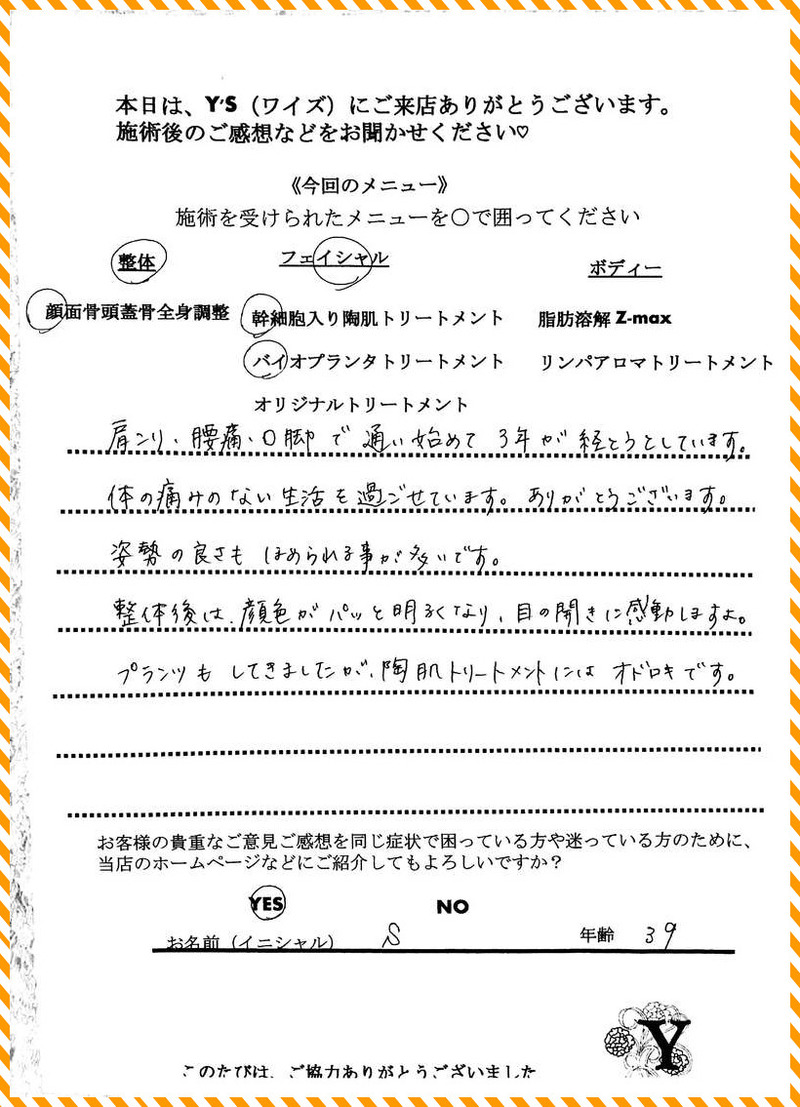 本日は、Y'S（ワイズ）にご来店ありがとうございます。
施術後のご感想などをお聞かせください♡
《今回のメニュー》
施術を受けられたメニューを〇で囲ってください
整体 フェイシャル ボディー
顔面骨頭蓋骨全身調整 幹細胞入り陶肌トリートメント 脂肪溶解 Z-max
バイオプランタトリートメント リンパアロマトリートメント
オリジナルトリートメント
肩こり、腰痛、O脚で通い始めて3年が経とうとしています。
体の痛みのない生活を過ごせています。ありがとうございます。
姿勢の良さもほめられる事が多いです。
整体後は、顔色がパッと明るくなり、目の開きに感動しますよ。
プランツもしてきましたが、陶肌トリートメントにはオドロキです。
お客様の貴重なご意見ご感想を同じ症状で困っている方や迷っている方のために、
当店のホームページなどにご紹介してもよろしいですか？
YES NO
お名前（イニシャル） S 年齢 39
Y
このたびは、ご協力ありがとうございました